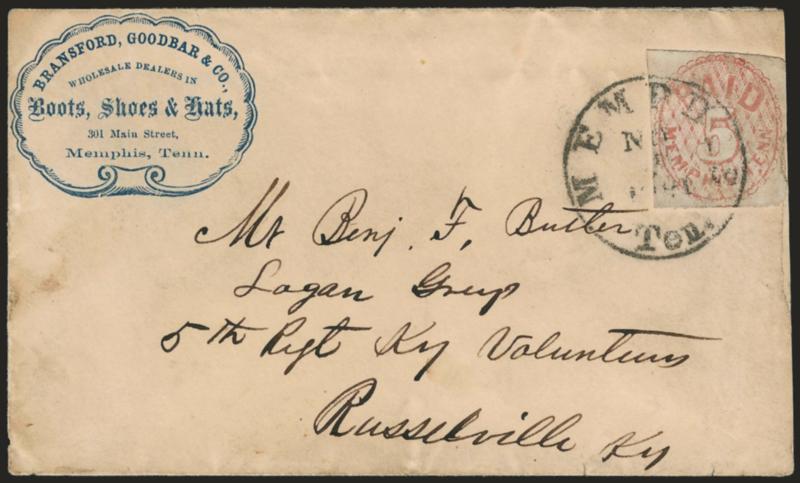 BRANSFORD, GOODBAR & CO.,
WHOLESALE DEALERS IN
Boots, Shoes & Hats,
301 Main Street,
Memphis, Tenn.
PAID
5
MEMPHIS, TENN
MEMP
Ten.
Mr Benj. F. Butler
Logan Greys
5th Regt Ky Volunteers
Russelville Ky